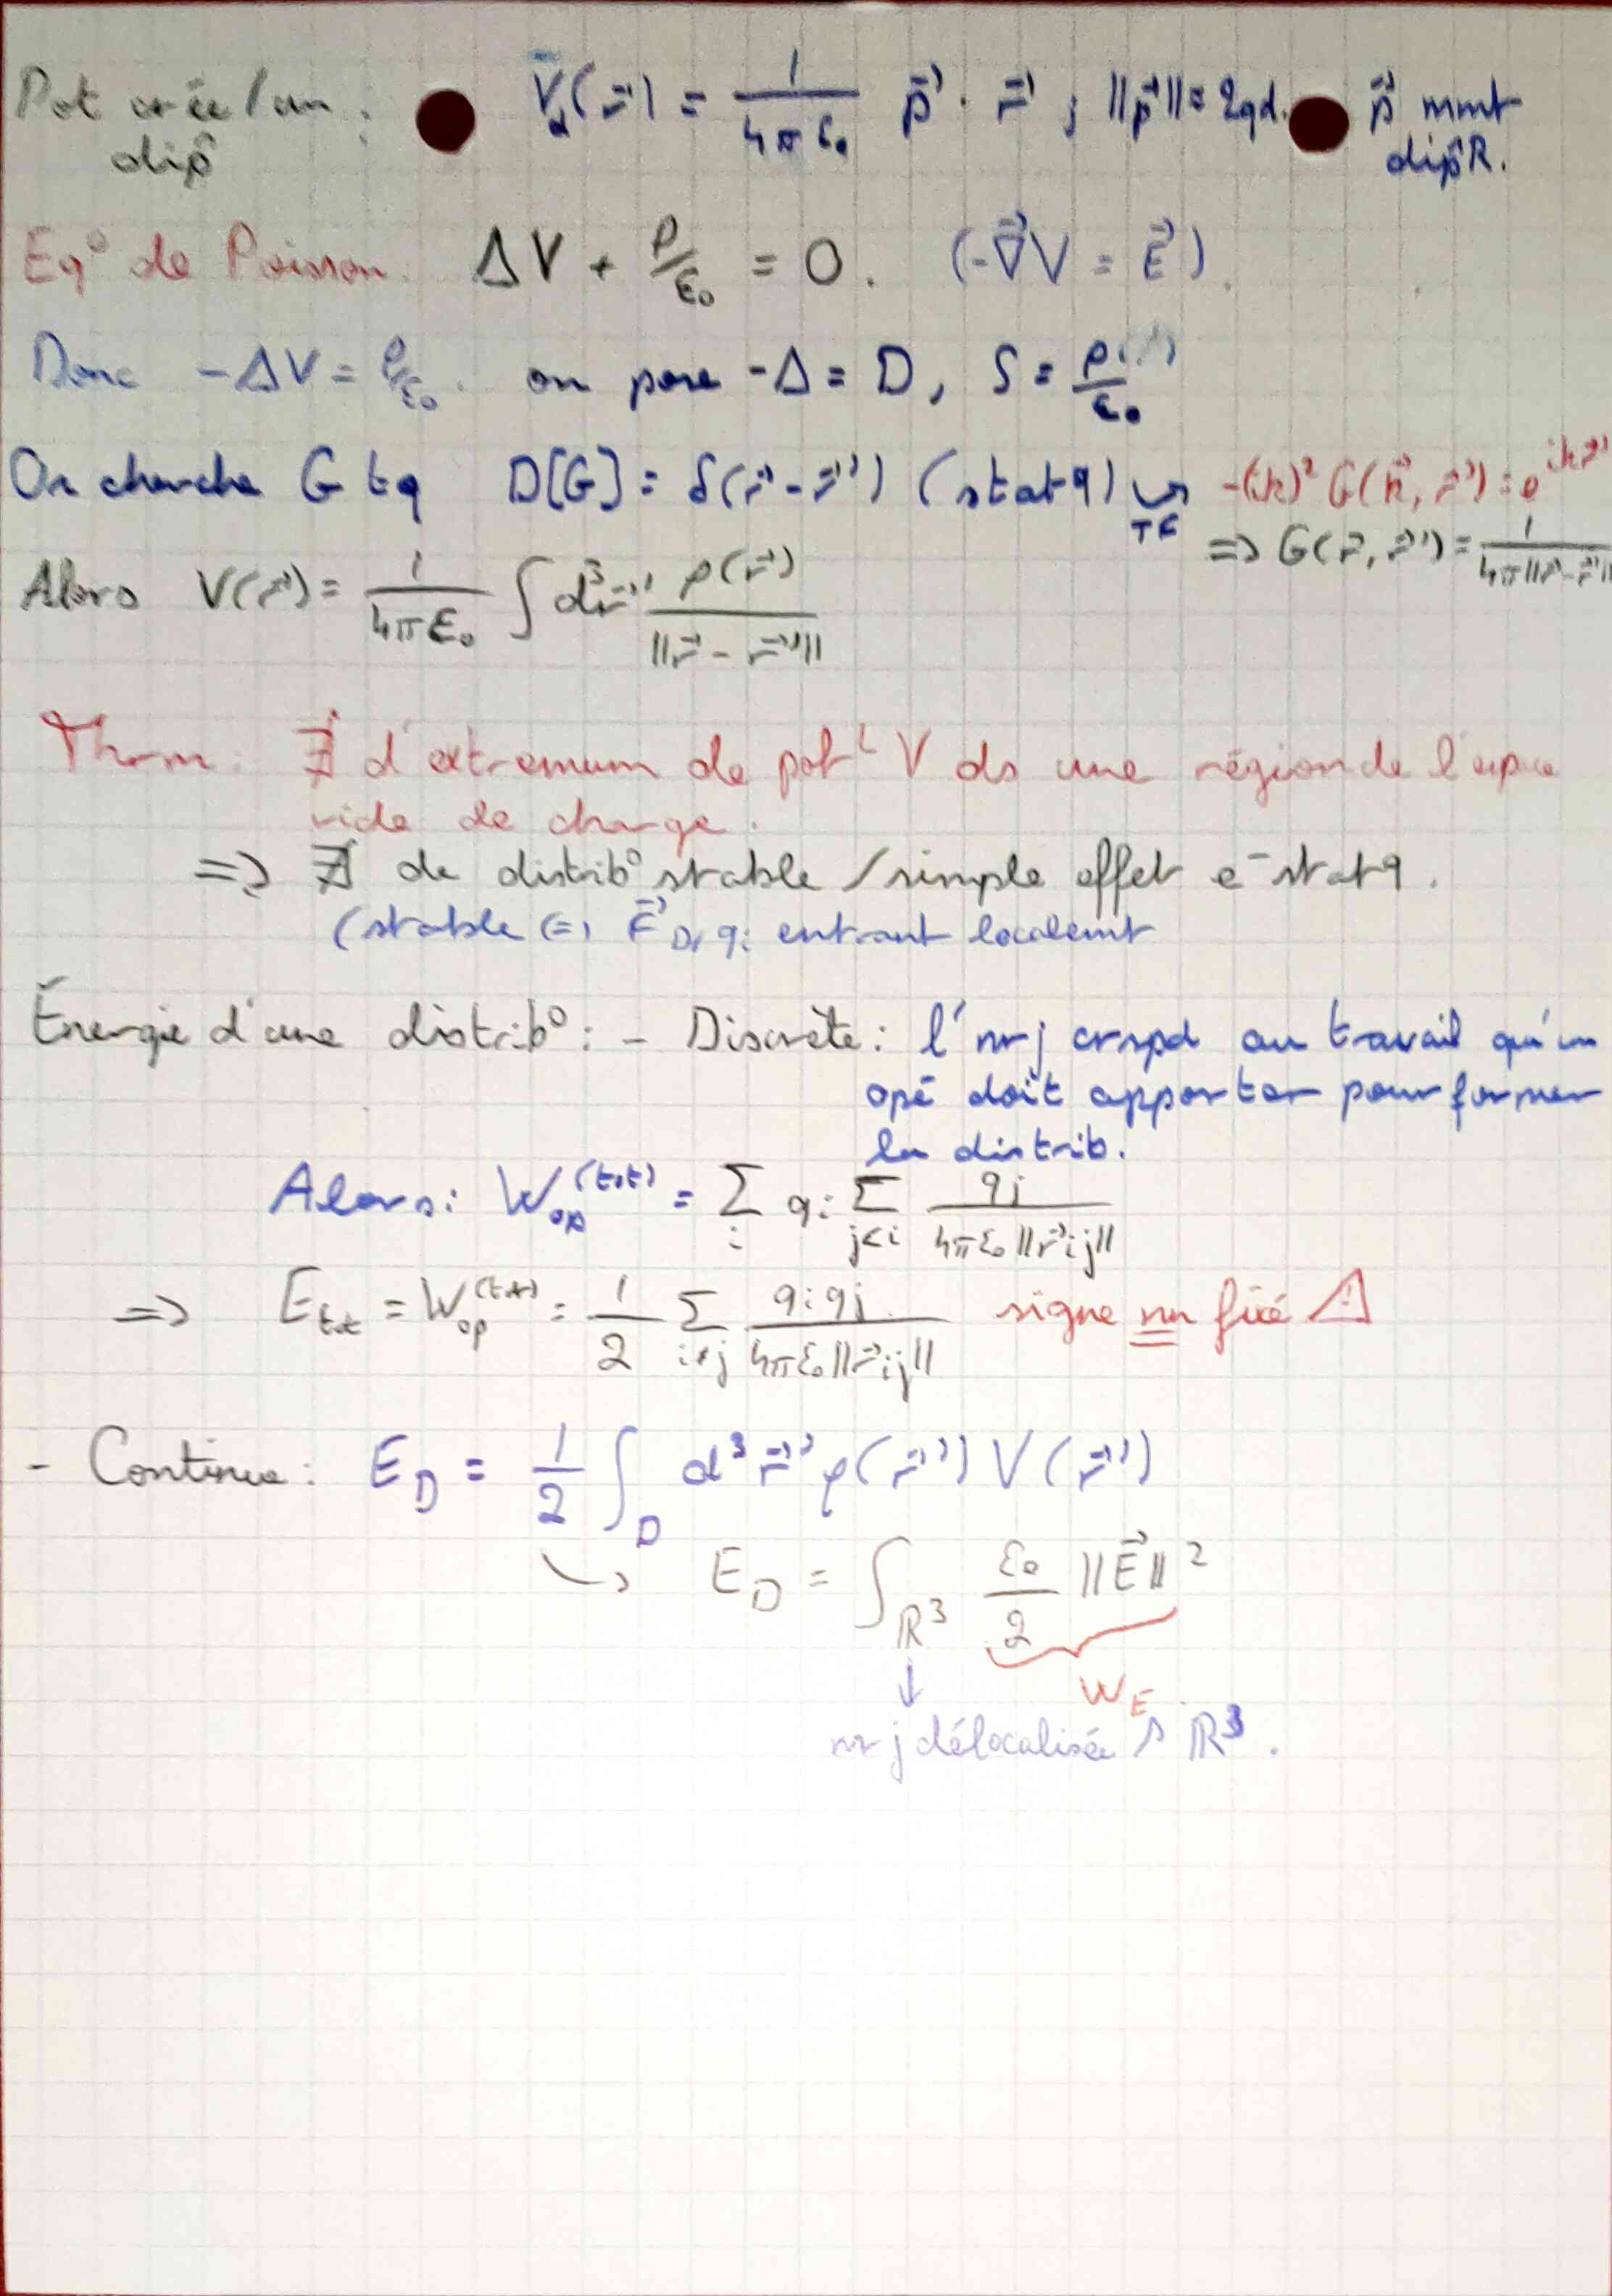 Pot crée / un dip^ : V_d(r⃗) = 1/(4πε₀) p⃗ · r⃗ ; ||p⃗|| = 2qd. p⃗ mmt dip^R.
Eq° de Poisson. ΔV + ρ/ε₀ = 0. (-∇⃗V = E⃗).
Donc -ΔV = ρ/ε₀. on pose -Δ = D, S = ρ/ε₀
On cherche G tq D[G] = δ(r⃗ - r⃗') (statq) ↪ TF -(ik)² G(k⃗, r⃗') = e^{ikr⃗'}
⇒ G(r⃗, r⃗') = 1/(4π||r⃗-r⃗'||)
Alors V(r⃗) = 1/(4πε₀) ∫ d³r⃗' ρ(r⃗')/||r⃗ - r⃗'||
Thrm : ∄ d'extremum de pot^L V ds une région de l'espace
vide de charge.
⇒ ∄ de distrib° stable / simple effet e⁻statq.
(stable ⇔ F⃗_{D/qi} entrant localemt
Énergie d'une distrib° : - Discrète : l'nrj crspd au travail qu'un
opé doit apporter pour former
la distrib.
Alors : W_op^(tot) = Σ_i qi Σ_{j<i} qj/(4πε₀||r⃗ij||)
⇒ E_tot = W_op^(tot) = 1/2 Σ_{i≠j} qiqj/(4πε₀||r⃗ij||) signe nn fixé ⚠
- Continue : E_D = 1/2 ∫_D d³r⃗' ρ(r⃗') V(r⃗')
↪ E_D = ∫_{ℝ³} ε₀/2 ||E⃗||²
↓ W_E
nrj délocalisée s ℝ³.